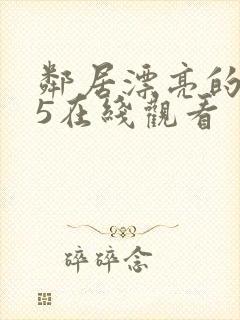 鄰居漂亮的
5在綫觀看
碎碎念